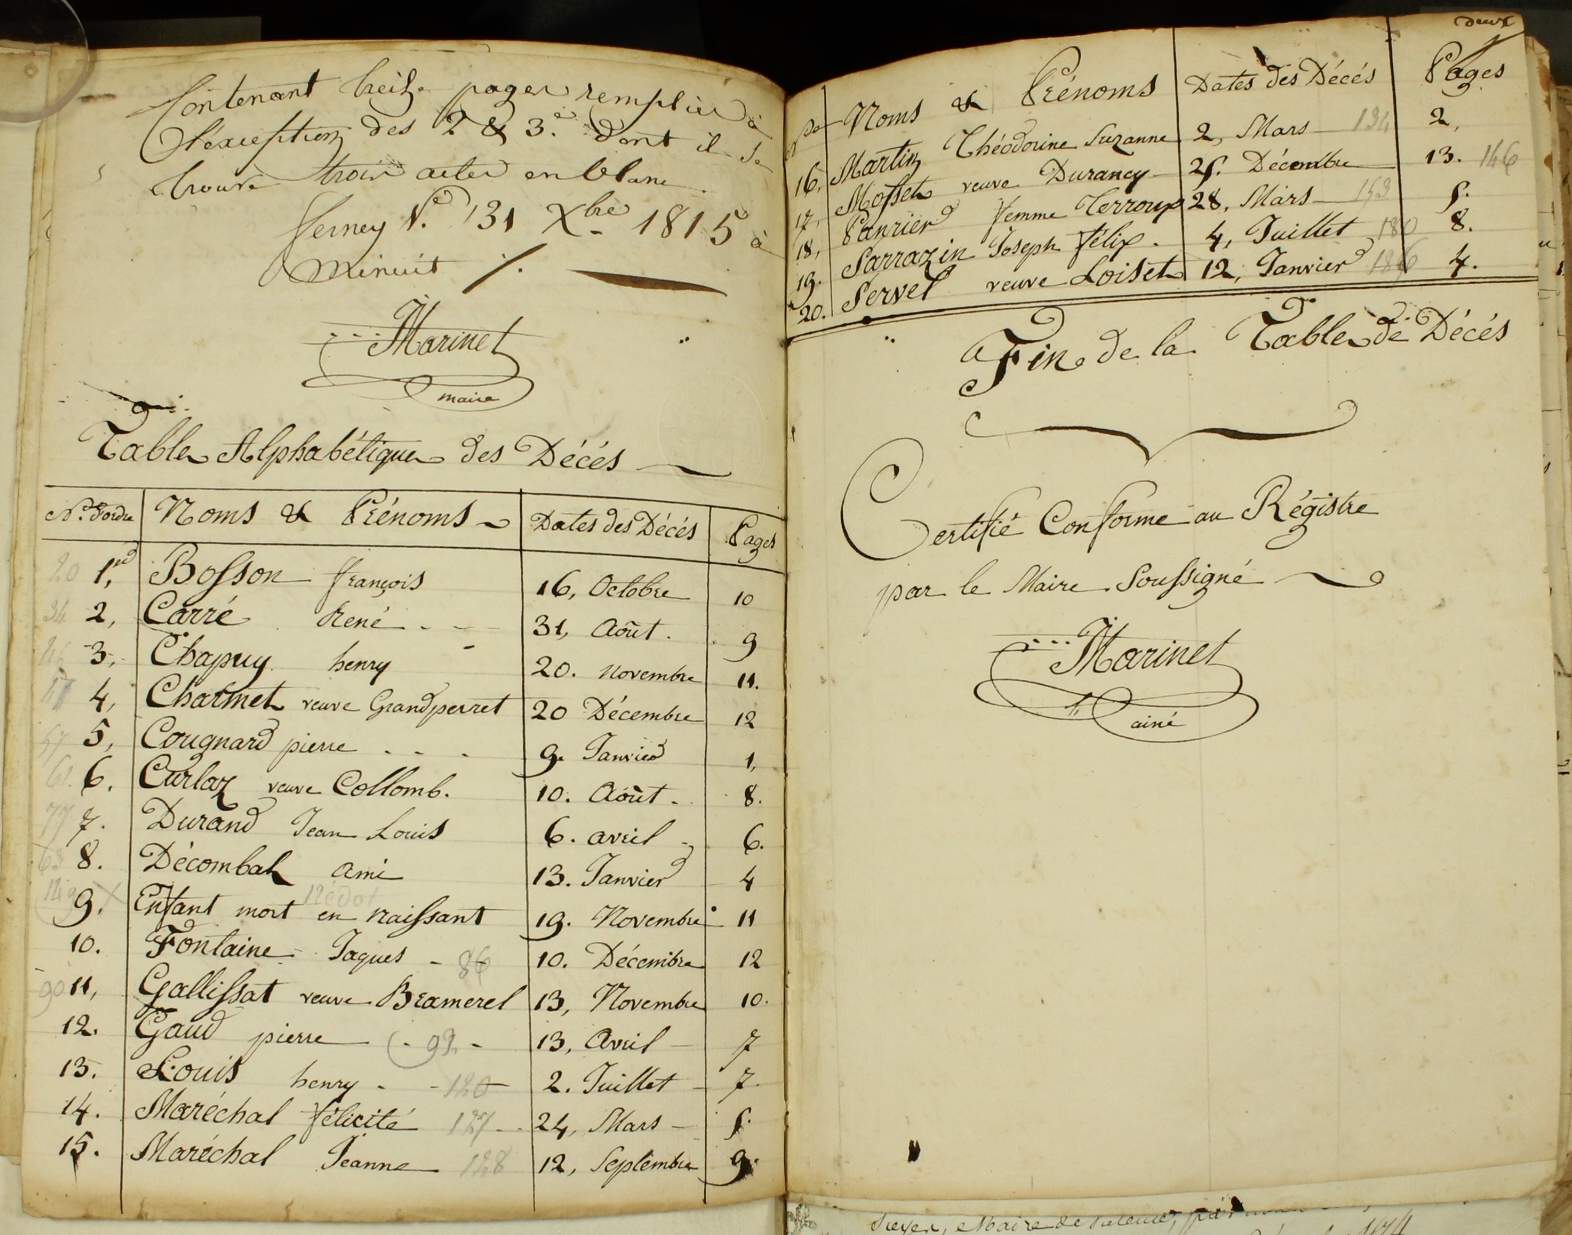 Contenant treize pages remplies à
l'exception des 2 & 3.e dont il se
trouve trois actes en blanc.
ferney V. 31 Xbre 1815 à
minuit ./.
Marinet
maire
Table Alphabétique des Décés
N.o d'ordre Noms & Prénoms Dates des Décés Pages
20 1, Bosson françois 16, Octobre 10
34 2, Carré René 31, Août. 9
3, Chapuy henry 20. Novembre 11.
4, Charmet veuve Grandperret 20 Décembre 12
57 5, Cougnard pierre 9. Janvier 1,
61. 6. Curlaz veuve Collomb. 10. Août. 8.
77 7. Durand Jean Louis 6. avril 6.
63 8. Décombal ami 13. Janvier 4
9. Enfant mort en naissant 19. Novembre 11
10. Fontaine Jaques 86 10. Décembre 12
90 11, Gallissat veuve Bramerel 13, Novembre 10.
12. Gaud pierre 93 13, Avril 7
13. Louis henry 120 2. Juillet 7.
14. Maréchal félicité 127 24, Mars 5.
15. Maréchal Jeanne 128 12, Septembre 9.
deux
No Noms & Prénoms Dates des Décés Pages
16, Martin Théodorine Suzanne 2, Mars 134 2,
17, Mosset veuve Durancy 25. Décembre 13. 146
18, Panrier femme Terroux 28, Mars 153 5.
19. Sarrazin Joseph félix. 4, Juillet 180 8.
20. Servel veuve Loiset 12, Janvier 186 4.
Fin de la Table de Décés
Certifié Conforme au Régistre
par le Maire Soussigné
Marinet
ainé